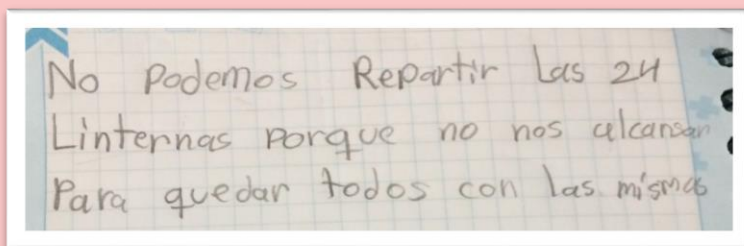 No Podemos Repartir Las 24
Linternas porque no nos alcansan
Para quedar todos con las mismas